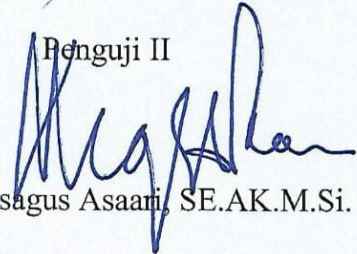 Penguji II
sagus Asaari, SE.AK.M.Si.